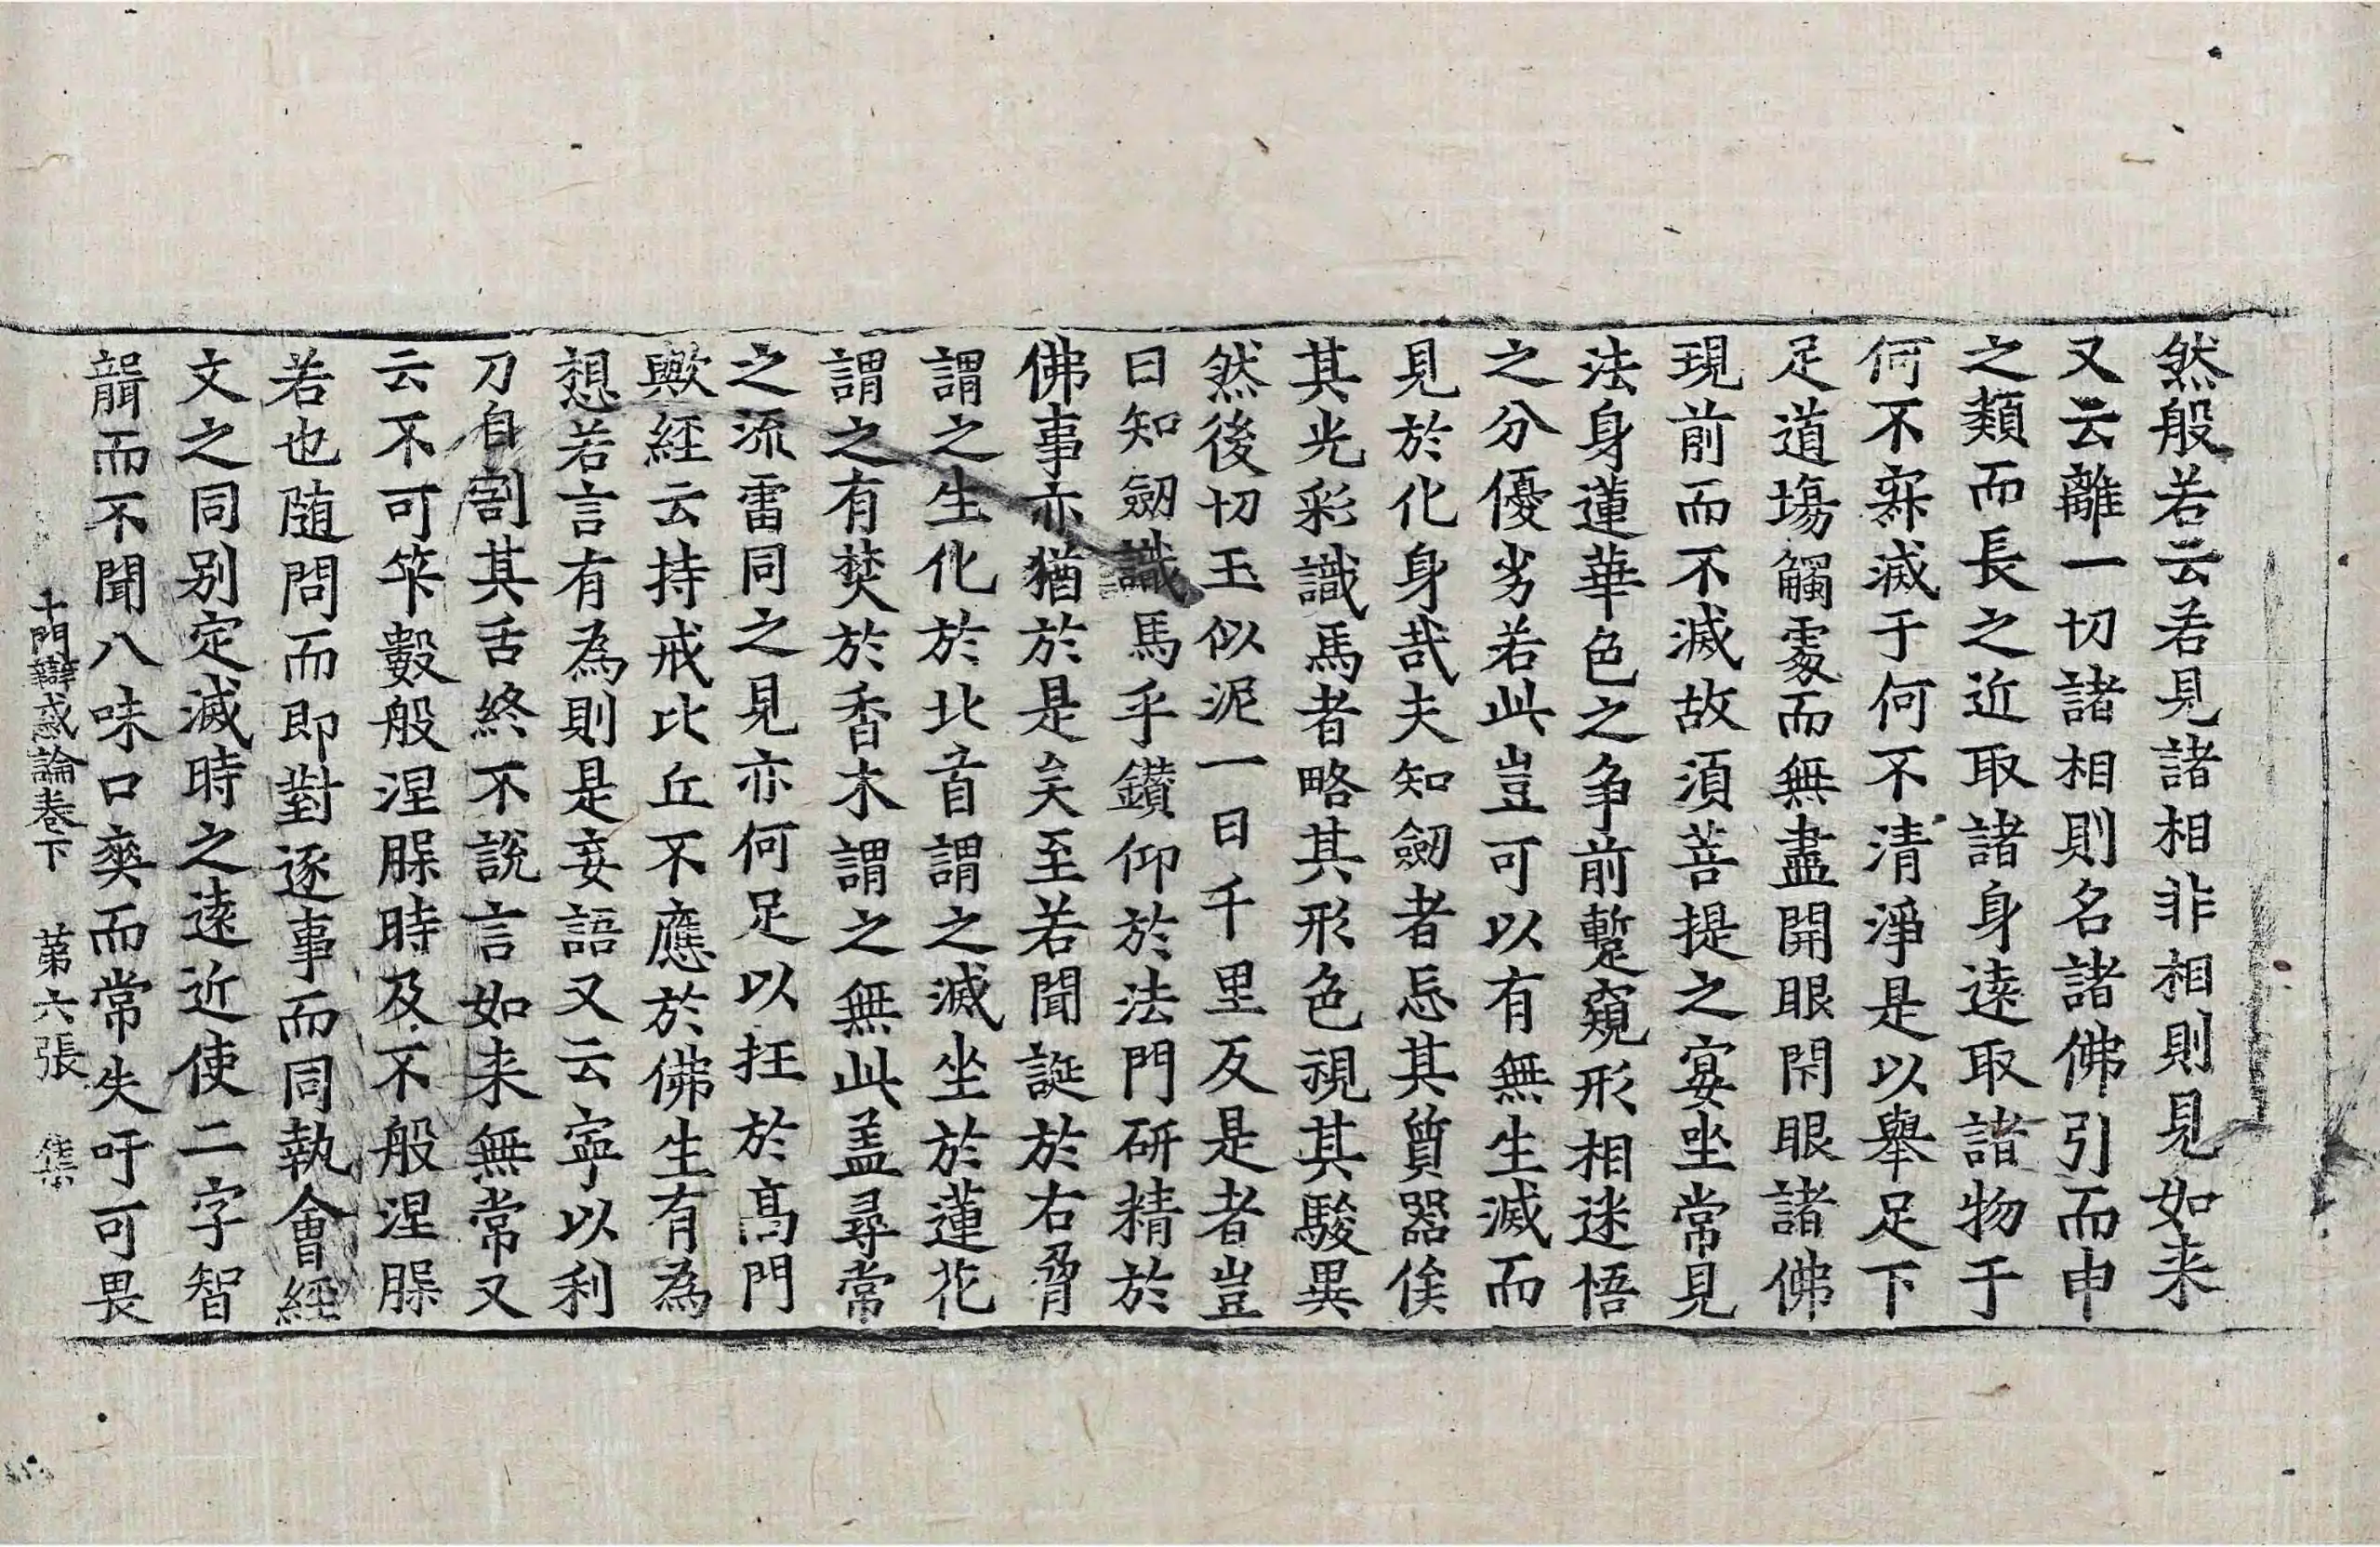 然般若云若見諸相非相則見如来
又云離一切諸相則名諸佛引而申
之類而長之近取諸身遠取諸物于
何不寂滅于何不清淨是以舉足下
足道塲觸處而無盡開眼閇眼諸佛
現前而不滅故須菩提之宴坐常見
法身蓮華色之争前蹔窺形相迷悟
之分優劣若此豈可以有無生滅而
見於化身㦲夫知劒者忘其質器俟
其光彩識馬者略其形色視其駿異
然後切玉似泥一日千里反是者豈
曰知劒識馬乎鑚仰於法門研精於
佛事亦猶於是矣至若聞誕於右脅
謂之生化於北首謂之滅坐於蓮花
謂之有焚於香木謂之無此盖尋常
之流雷同之見亦何足以抂於髙門
歟經云持戒比丘不應於佛生有為
想若言有為則是妄語又云寜以利
刀自割其舌終不說言如来無常又
云不可筭數般涅腂時及不般涅腂
若也随問而即對逐事而同執會經
文之同别定滅時之遠近使二字智
聟而不聞八味口爽而常失吁可畏
十門辯惑論卷下 第六張 集